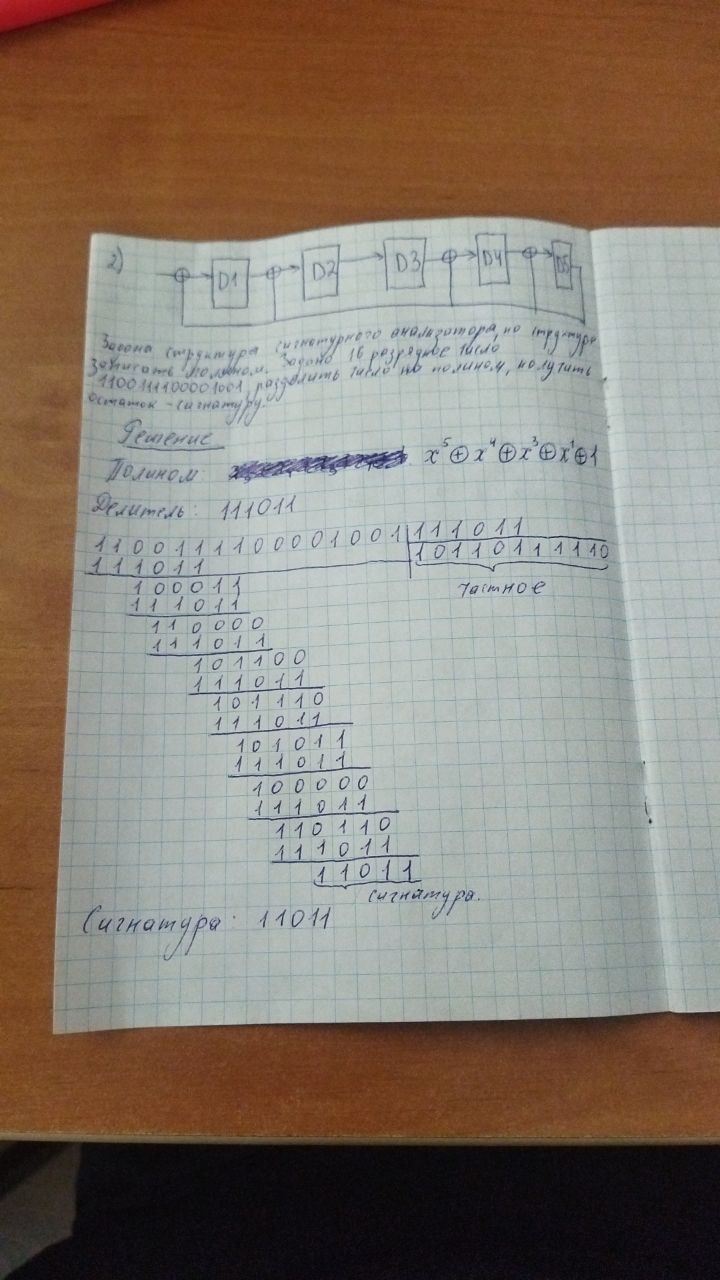 2)
D1 D2 D3 D4 D5
Задана структура сигнатурного анализатора, по структуре
записать полином. Задано 16 разрядное число
1100111100001001, разделить число на полином, получить
остаток - сигнатуру.
Решение
Полином: x⁵ ⊕ x⁴ ⊕ x³ ⊕ x¹ ⊕ 1
Делитель: 111011
1100111100001001 111011
111011 10110111110
100011 частное
111011
110000
111011
101100
111011
101110
111011
101011
111011
100000
111011
110110
111011
11011
сигнатура.
Сигнатура: 11011